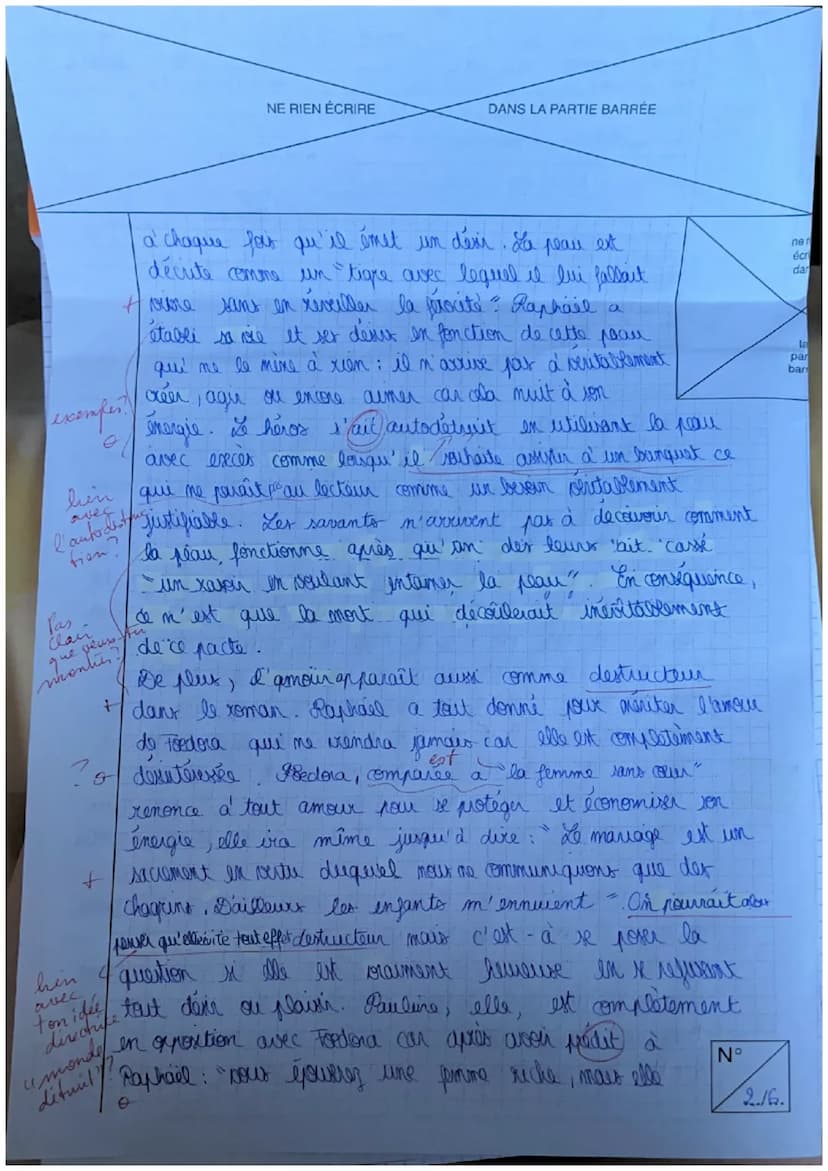 NE RIEN ÉCRIRE DANS LA PARTIE BARRÉE
à chaque fois qu'il émet un désir. La peau est
décrite comme un "tigre avec lequel il lui fallait
+ vivre sans en réveiller la férocité". Raphaël a
établi sa vie et ses désirs en fonction de cette peau
qui ne le mène à rien : il n'arrive pas à véritablement
créer, agir ou encore aimer car cela nuit à son
exemples?
énergie. Le héros s'ait autodétruit en utilisant la peau
avec excès comme lorsqu'il souhaite assister à un banquet ce
qui ne paraît pas au lecteur comme un besoin véritablement
lien avec l'autodestruction?
justifiable. Les savants n'arrivent pas à découvrir comment
la peau fonctionne après qu'un des leurs ait cassé
"un rasoir en voulant entamer la peau". En conséquence,
ce n'est que la mort qui découlerait inévitablement
de ce pacte.
Pas clair que veux-tu montrer?
De plus, l'amour apparaît aussi comme destructeur
+ dans le roman. Raphaël a tout donné pour mériter l'amour
de Foedora qui ne viendra jamais car elle est complètement
est
? désintéressée. Foedora, comparée à "la femme sans cœur"
renonce à tout amour pour se protéger et économiser son
énergie, elle ira même jusqu'à dire : "Le mariage est un
+ sacrement en vertu duquel nous ne communiquons que des
chagrins. D'ailleurs les enfants m'ennuient". On pourrait alors
penser qu'elle évite tout effet destructeur mais c'est-à se poser la
question si elle est vraiment heureuse en se refusant
lien avec ton idée directrice "monde détruit"?
tout désir ou plaisir. Pauline, elle, est complètement
en opposition avec Foedora car après avoir prédit à
Raphaël : "vous épousrez une femme riche, mais elle
N°
2/6.
ne r
écri
dar
la
par
barr